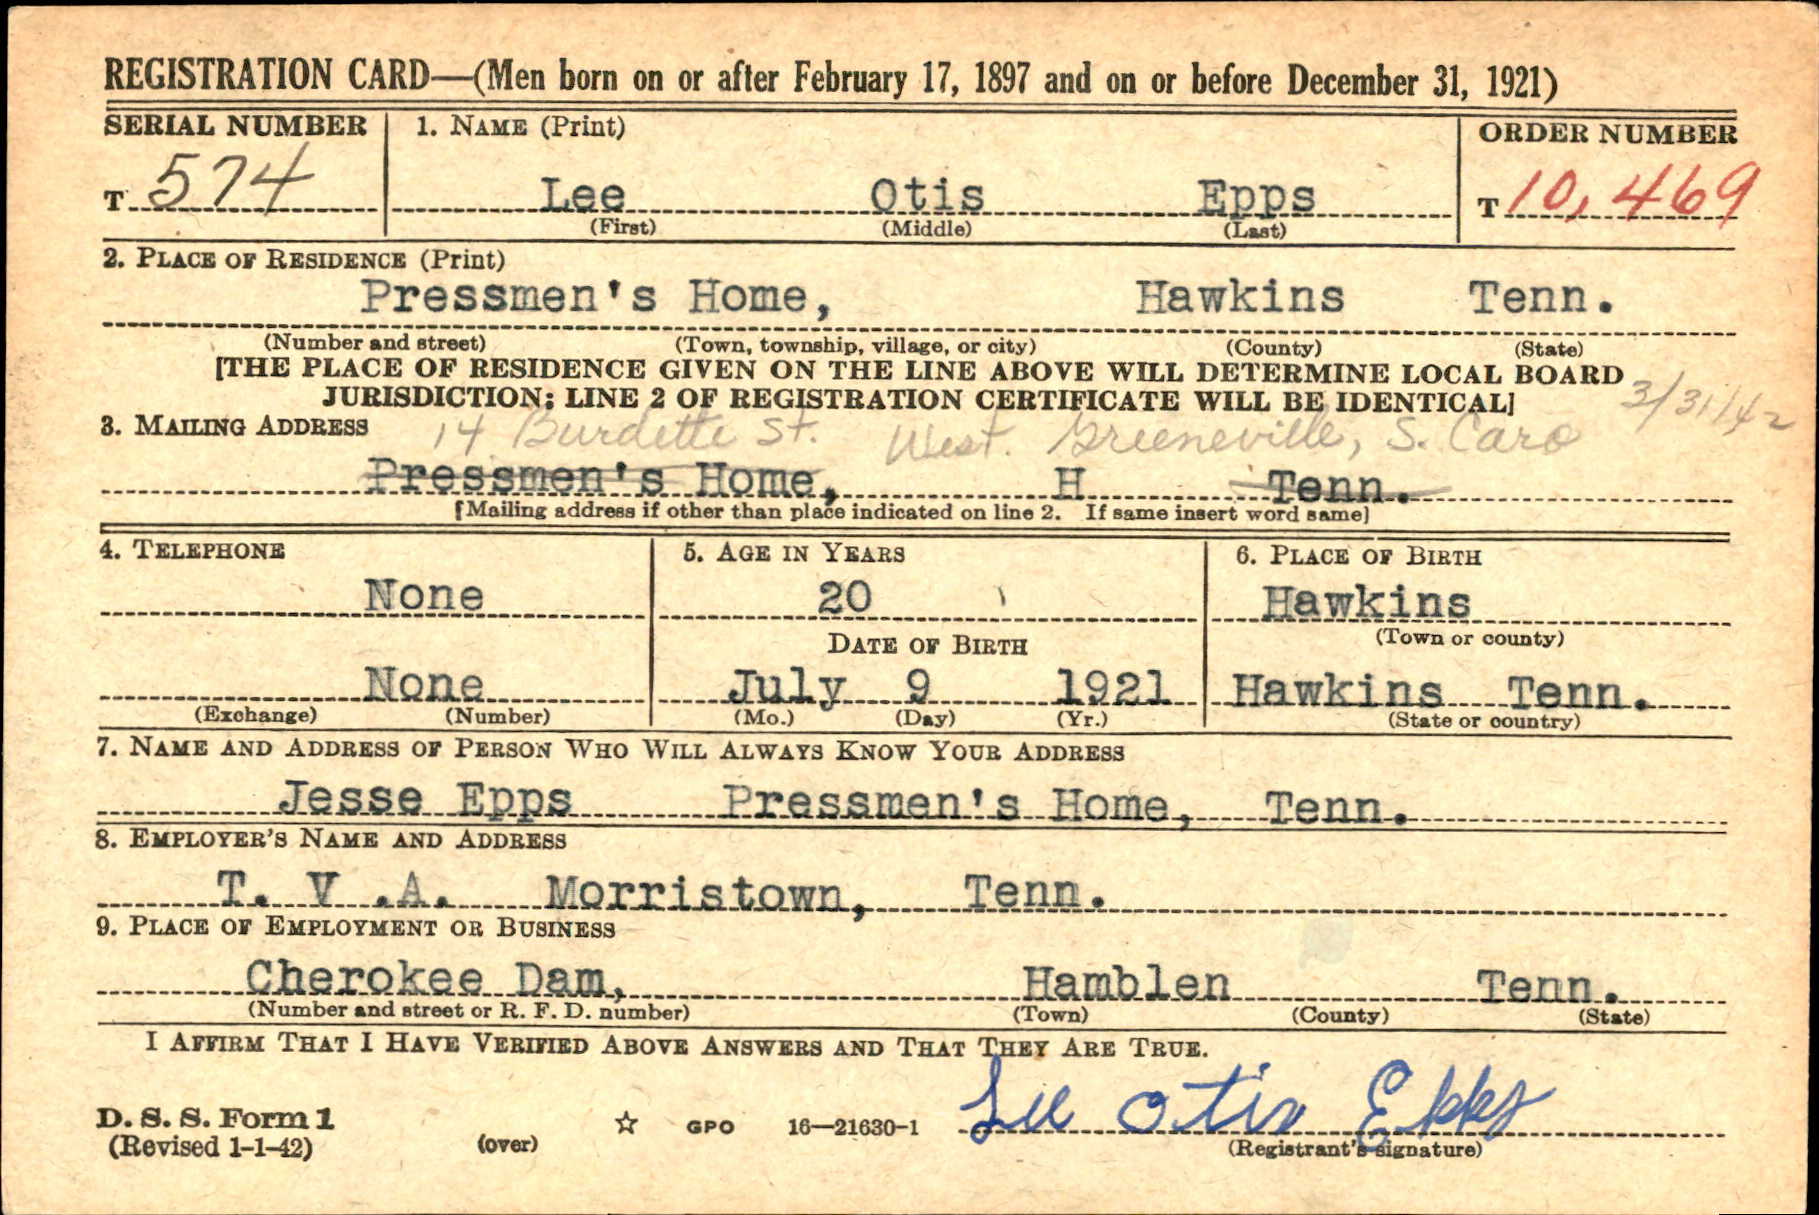 REGISTRATION CARD—(Men born on or after February 17, 1897 and on or before December 31, 1921)
SERIAL NUMBER 1. NAME (Print) ORDER NUMBER
T 574 Lee Otis Epps T 10,469
(First) (Middle) (Last)
2. PLACE OF RESIDENCE (Print)
Pressmen's Home, Hawkins Tenn.
(Number and street) (Town, township, village, or city) (County) (State)
[THE PLACE OF RESIDENCE GIVEN ON THE LINE ABOVE WILL DETERMINE LOCAL BOARD
JURISDICTION; LINE 2 OF REGISTRATION CERTIFICATE WILL BE IDENTICAL] 3/31/42
3. MAILING ADDRESS 14 Burdette St. West. Greeneville, S. Caro
Pressmen's Home, H Tenn.
[Mailing address if other than place indicated on line 2. If same insert word same]
4. TELEPHONE 5. AGE IN YEARS 6. PLACE OF BIRTH
None 20 Hawkins
DATE OF BIRTH (Town or county)
None July 9 1921 Hawkins Tenn.
(Exchange) (Number) (Mo.) (Day) (Yr.) (State or country)
7. NAME AND ADDRESS OF PERSON WHO WILL ALWAYS KNOW YOUR ADDRESS
Jesse Epps Pressmen's Home, Tenn.
8. EMPLOYER'S NAME AND ADDRESS
T. V .A. Morristown, Tenn.
9. PLACE OF EMPLOYMENT OR BUSINESS
Cherokee Dam, Hamblen Tenn.
(Number and street or R. F. D. number) (Town) (County) (State)
I AFFIRM THAT I HAVE VERIFIED ABOVE ANSWERS AND THAT THEY ARE TRUE.
D. S. S. Form 1 Lee Otis Epps
(Revised 1-1-42) (over) ☆ GPO 16—21630-1 (Registrant's signature)